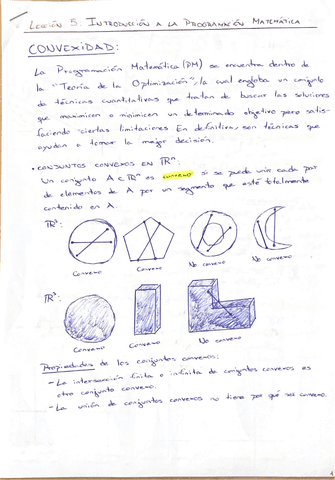 LECCIÓN 5: INTRODUCCIÓN A LA PROGRAMACIÓN MATEMÁTICA
CONVEXIDAD:
La Programación Matemática (PM) se encuentra dentro de
la "Teoría de la Optimización", la cual engloba un conjunto
de técnicas cuantitativas que tratan de buscar las soluciones
que maximicen o minimicen un determinado objetivo pero satis-
faciendo ciertas limitaciones. En definitiva, son técnicas que
ayudan a tomar la mejor decisión.
• CONJUNTOS CONVEXOS EN ℝⁿ:
Un conjunto A ⊂ ℝⁿ es convexo si se puede unir cada par
de elementos de A por un segmento que esté totalmente
contenido en A.
ℝ²:
Convexo Convexo No convexo No convexo
ℝ³:
Convexo Convexo No convexo
Propiedades de los conjuntos convexos:
- La intersección finita o infinita de conjuntos convexos es
otro conjunto convexo.
- La unión de conjuntos convexos no tiene por qué ser convexo.